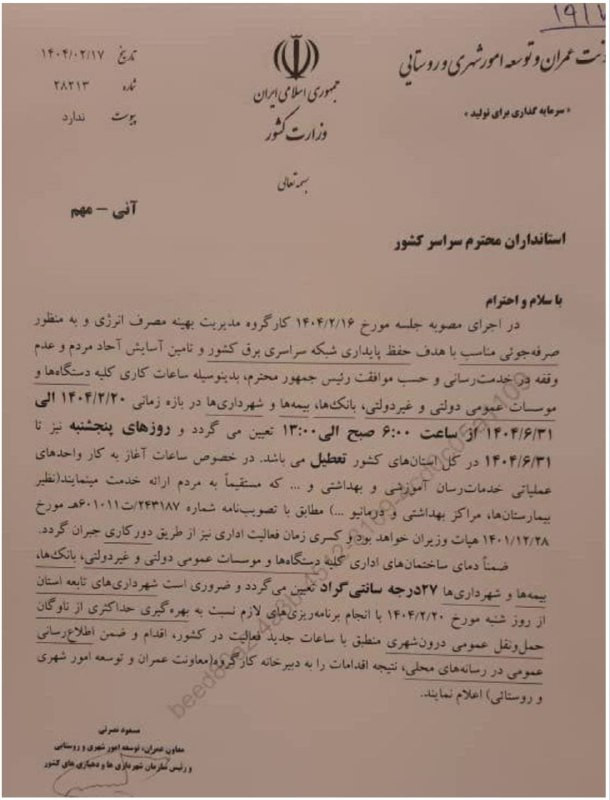 ۱۹/۲
معاونت عمران و توسعه امور شهری و روستایی
جمهوری اسلامی ایران
وزارت کشور
تاریخ ۱۴۰۴/۰۲/۱۷
شماره ۲۸۲۱۳
پیوست ندارد
« سرمایه گذاری برای تولید »
بسمه تعالی
آنی – مهم
استانداران محترم سراسر کشور
با سلام و احترام
در اجرای مصوبه جلسه مورخ ۱۴۰۴/۲/۱۶ کارگروه مدیریت بهینه مصرف انرژی و به منظور
صرفه‌جوئی مناسب با هدف حفظ پایداری شبکه سراسری برق کشور و تامین آسایش آحاد مردم و عدم
وقفه در خدمت‌رسانی و حسب موافقت رئیس جمهور محترم، بدینوسیله ساعات کاری کلیه دستگاه‌ها و
موسسات عمومی دولتی و غیردولتی، بانک‌ها، بیمه‌ها و شهرداری‌ها در بازه زمانی ۱۴۰۴/۲/۲۰ الی
۱۴۰۴/۶/۳۱ از ساعت ۶:۰۰ صبح الی ۱۳:۰۰ تعیین می گردد و روزهای پنجشنبه نیز تا
۱۴۰۴/۶/۳۱ در کل استان‌های کشور تعطیل می باشد. در خصوص ساعات آغاز به کار واحدهای
عملیاتی خدمات‌رسان آموزشی و بهداشتی و ... که مستقیماً به مردم ارائه خدمت مینمایند(نظیر
بیمارستان‌ها، مراکز بهداشتی و درمانی و ...) مطابق با تصویب‌نامه شماره ۲۴۳۱۸۷/ت۶۰۱۰۱۱هـ مورخ
۱۴۰۱/۱۲/۲۸ هیات وزیران خواهد بود و کسری زمان فعالیت اداری نیز از طریق دورکاری جبران گردد.
ضمناً دمای ساختمان‌های اداری کلیه دستگاه‌ها و موسسات عمومی دولتی و غیردولتی، بانک‌ها،
بیمه‌ها و شهرداری‌ها ۲۷درجه سانتی‌گراد تعیین می‌گردد و ضروری است شهرداری‌های تابعه استان
از روز شنبه مورخ ۱۴۰۴/۲/۲۰ با انجام برنامه‌ریزی‌های لازم نسبت به بهره‌گیری حداکثری از ناوگان
حمل‌ونقل عمومی درون‌شهری منطبق با ساعات جدید فعالیت در کشور، اقدام و ضمن اطلاع‌رسانی
عمومی در رسانه‌های محلی، نتیجه اقدامات را به دبیرخانه کارگروه(معاونت عمران و توسعه امور شهری
و روستائی) اعلام نمایند.
مسعود نصرتی
معاون عمران، توسعه امور شهری و روستایی
و رئیس سازمان شهرداری ها و دهیاری های کشور